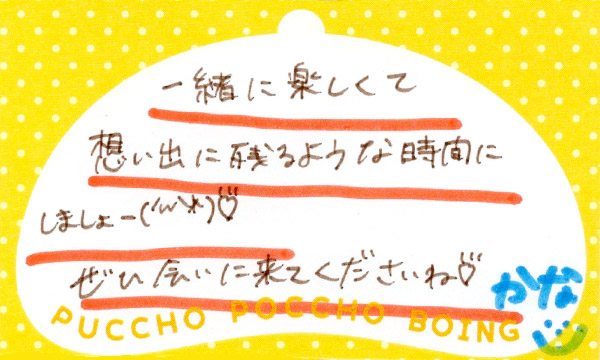 一緒に楽しくて
想い出に残るような時間に
しましょー(*'ω'*)♡
ぜひ会いに来てくださいね♡
かな
PUCCHO POCCHO BOING